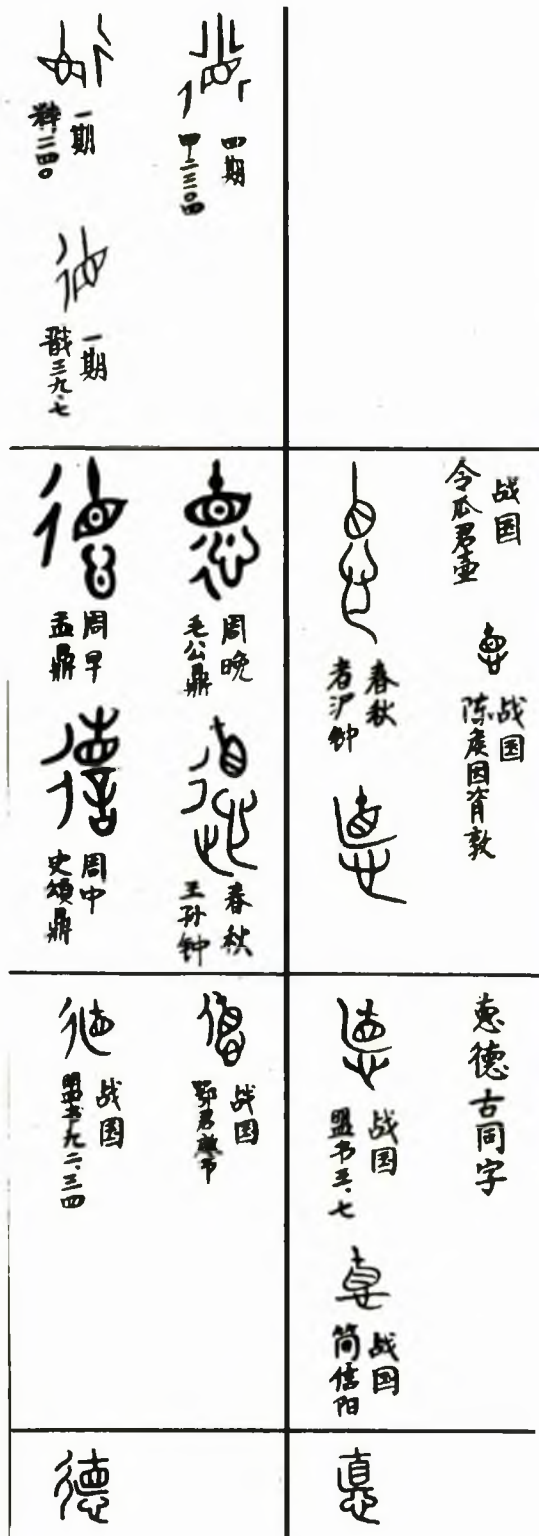 一期
粹二四〇
四期
甲二三〇四
一期
戬三九.七
周早
盂鼎
周晚
毛公鼎
周中
史颂鼎
春秋
王孙钟
战国
令瓜君壶
春秋
者沪钟
战国
陈侯因𬱖敦
战国
盟书九二.三四
战国
鄂君启节
德
战国
盟书三.七
战国
简信阳
惪德古同字
惪